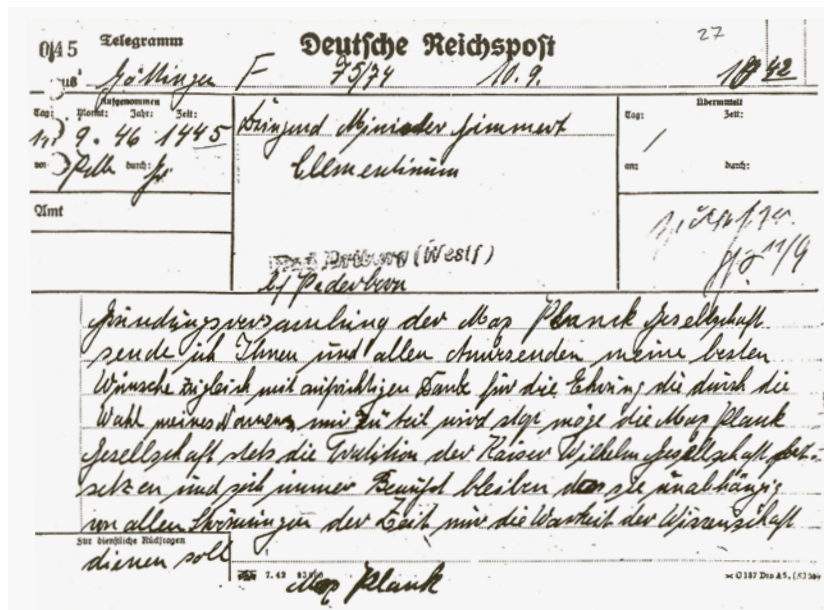 0145 Telegramm Deutsche Reichspost 27
aus Göttingen F 75/74 10.9. 1842
Aufgenommen
Tag: Monat: Jahr: Zeit:
9. 46 1445
von: durch:
Dringend Minister Grimme
Clementinum
Übermittelt
Tag: Zeit:
an: durch:
Amt
11/9
(Westf)
bei Paderborn
Gründungsversamlung der Max Planck Gesellschaft
sende ich Ihnen und allen Anwesenden meine besten
Wünsche zugleich mit aufrichtigen Dank für die Ehrung die durch die
Wahl meines Namens mir zu teil wird stop möge die Max Plank
Gesellschaft stets die Tradition der Kaiser Wilhelm Gesellschaft fort-
setzen und sich immer Bewußt bleiben das sie unabhängig
von allen Strömungen der Zeit nur die Warheit der Wissenschaft
Für dienstliche Rückfragen
dienen soll
Max Plank
7.42
C 187 Din A5,